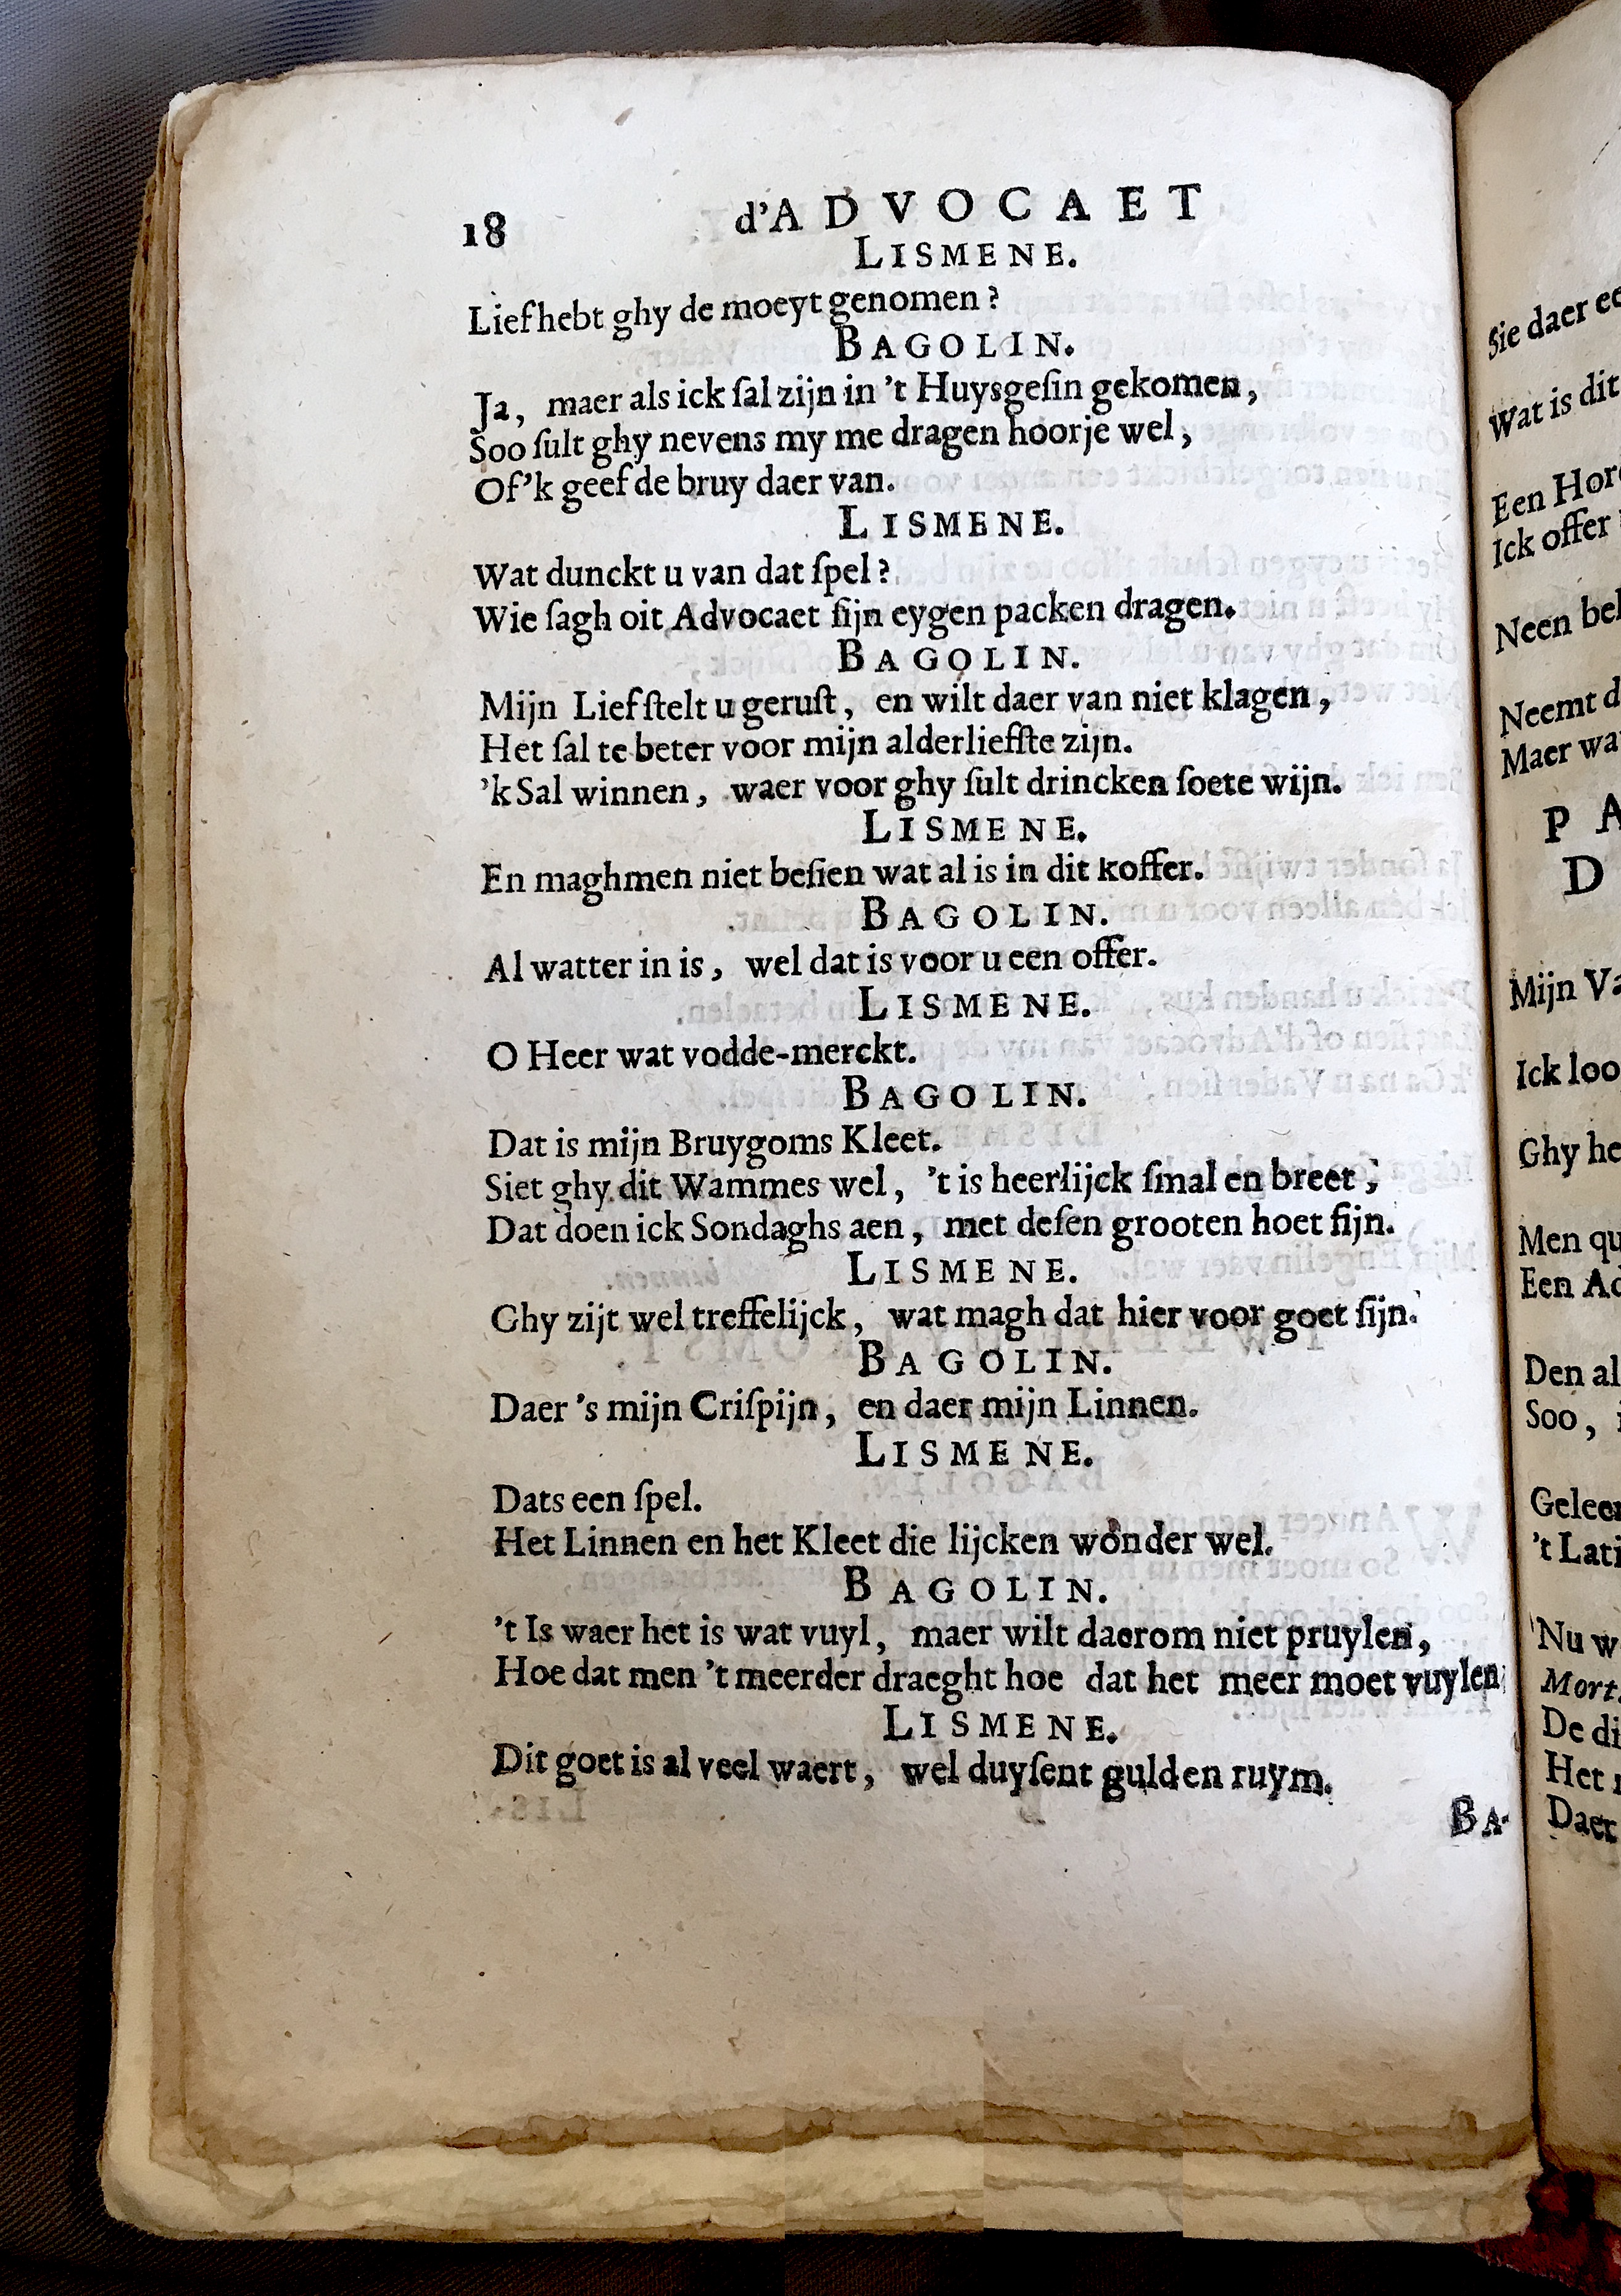 18 d'ADVOCAET
LISMENE.
Lief hebt ghy de moeyt genomen?
BAGOLIN.
Ja, maer als ick ſal zijn in 't Huysgeſin gekomen,
Soo ſult ghy nevens my me dragen hoorje wel,
Of'k geef de bruy daer van.
LISMENE.
Wat dunckt u van dat ſpel?
Wie ſagh oit Advocaet ſijn eygen packen dragen.
BAGOLIN.
Mijn Lief ſtelt u geruſt, en wilt daer van niet klagen,
Het ſal te beter voor mijn alderliefſte zijn.
'k Sal winnen, waer voor ghy ſult drincken ſoete wijn.
LISMENE.
En maghmen niet beſien wat al is in dit koffer.
BAGOLIN.
Al watter in is, wel dat is voor u een offer.
LISMENE.
O Heer wat vodde-merckt.
BAGOLIN.
Dat is mijn Bruygoms Kleet.
Siet ghy dit Wammes wel, 't is heerlijck ſmal en breet;
Dat doen ick Sondaghs aen, met deſen grooten hoet fijn.
LISMENE.
Ghy zijt wel treffelijck, wat magh dat hier voor goet ſijn.
BAGOLIN.
Daer 's mijn Criſpijn, en daer mijn Linnen.
LISMENE.
Dats een ſpel.
Het Linnen en het Kleet die lijcken wonder wel.
BAGOLIN.
't Is waer het is wat vuyl, maer wilt daerom niet pruylen,
Hoe dat men 't meerder draeght hoe dat het meer moet vuylen
LISMENE.
Dit goet is al veel waert, wel duyſent gulden ruym.
BA-
Sie daer
Wat is dit
Een
Ick offer
Neen
Neemt
Maer
P
D
Mijn
Ick
Ghy
Men
Een
Den
Soo,
't
Nu
Mort.
De
Het
Daer